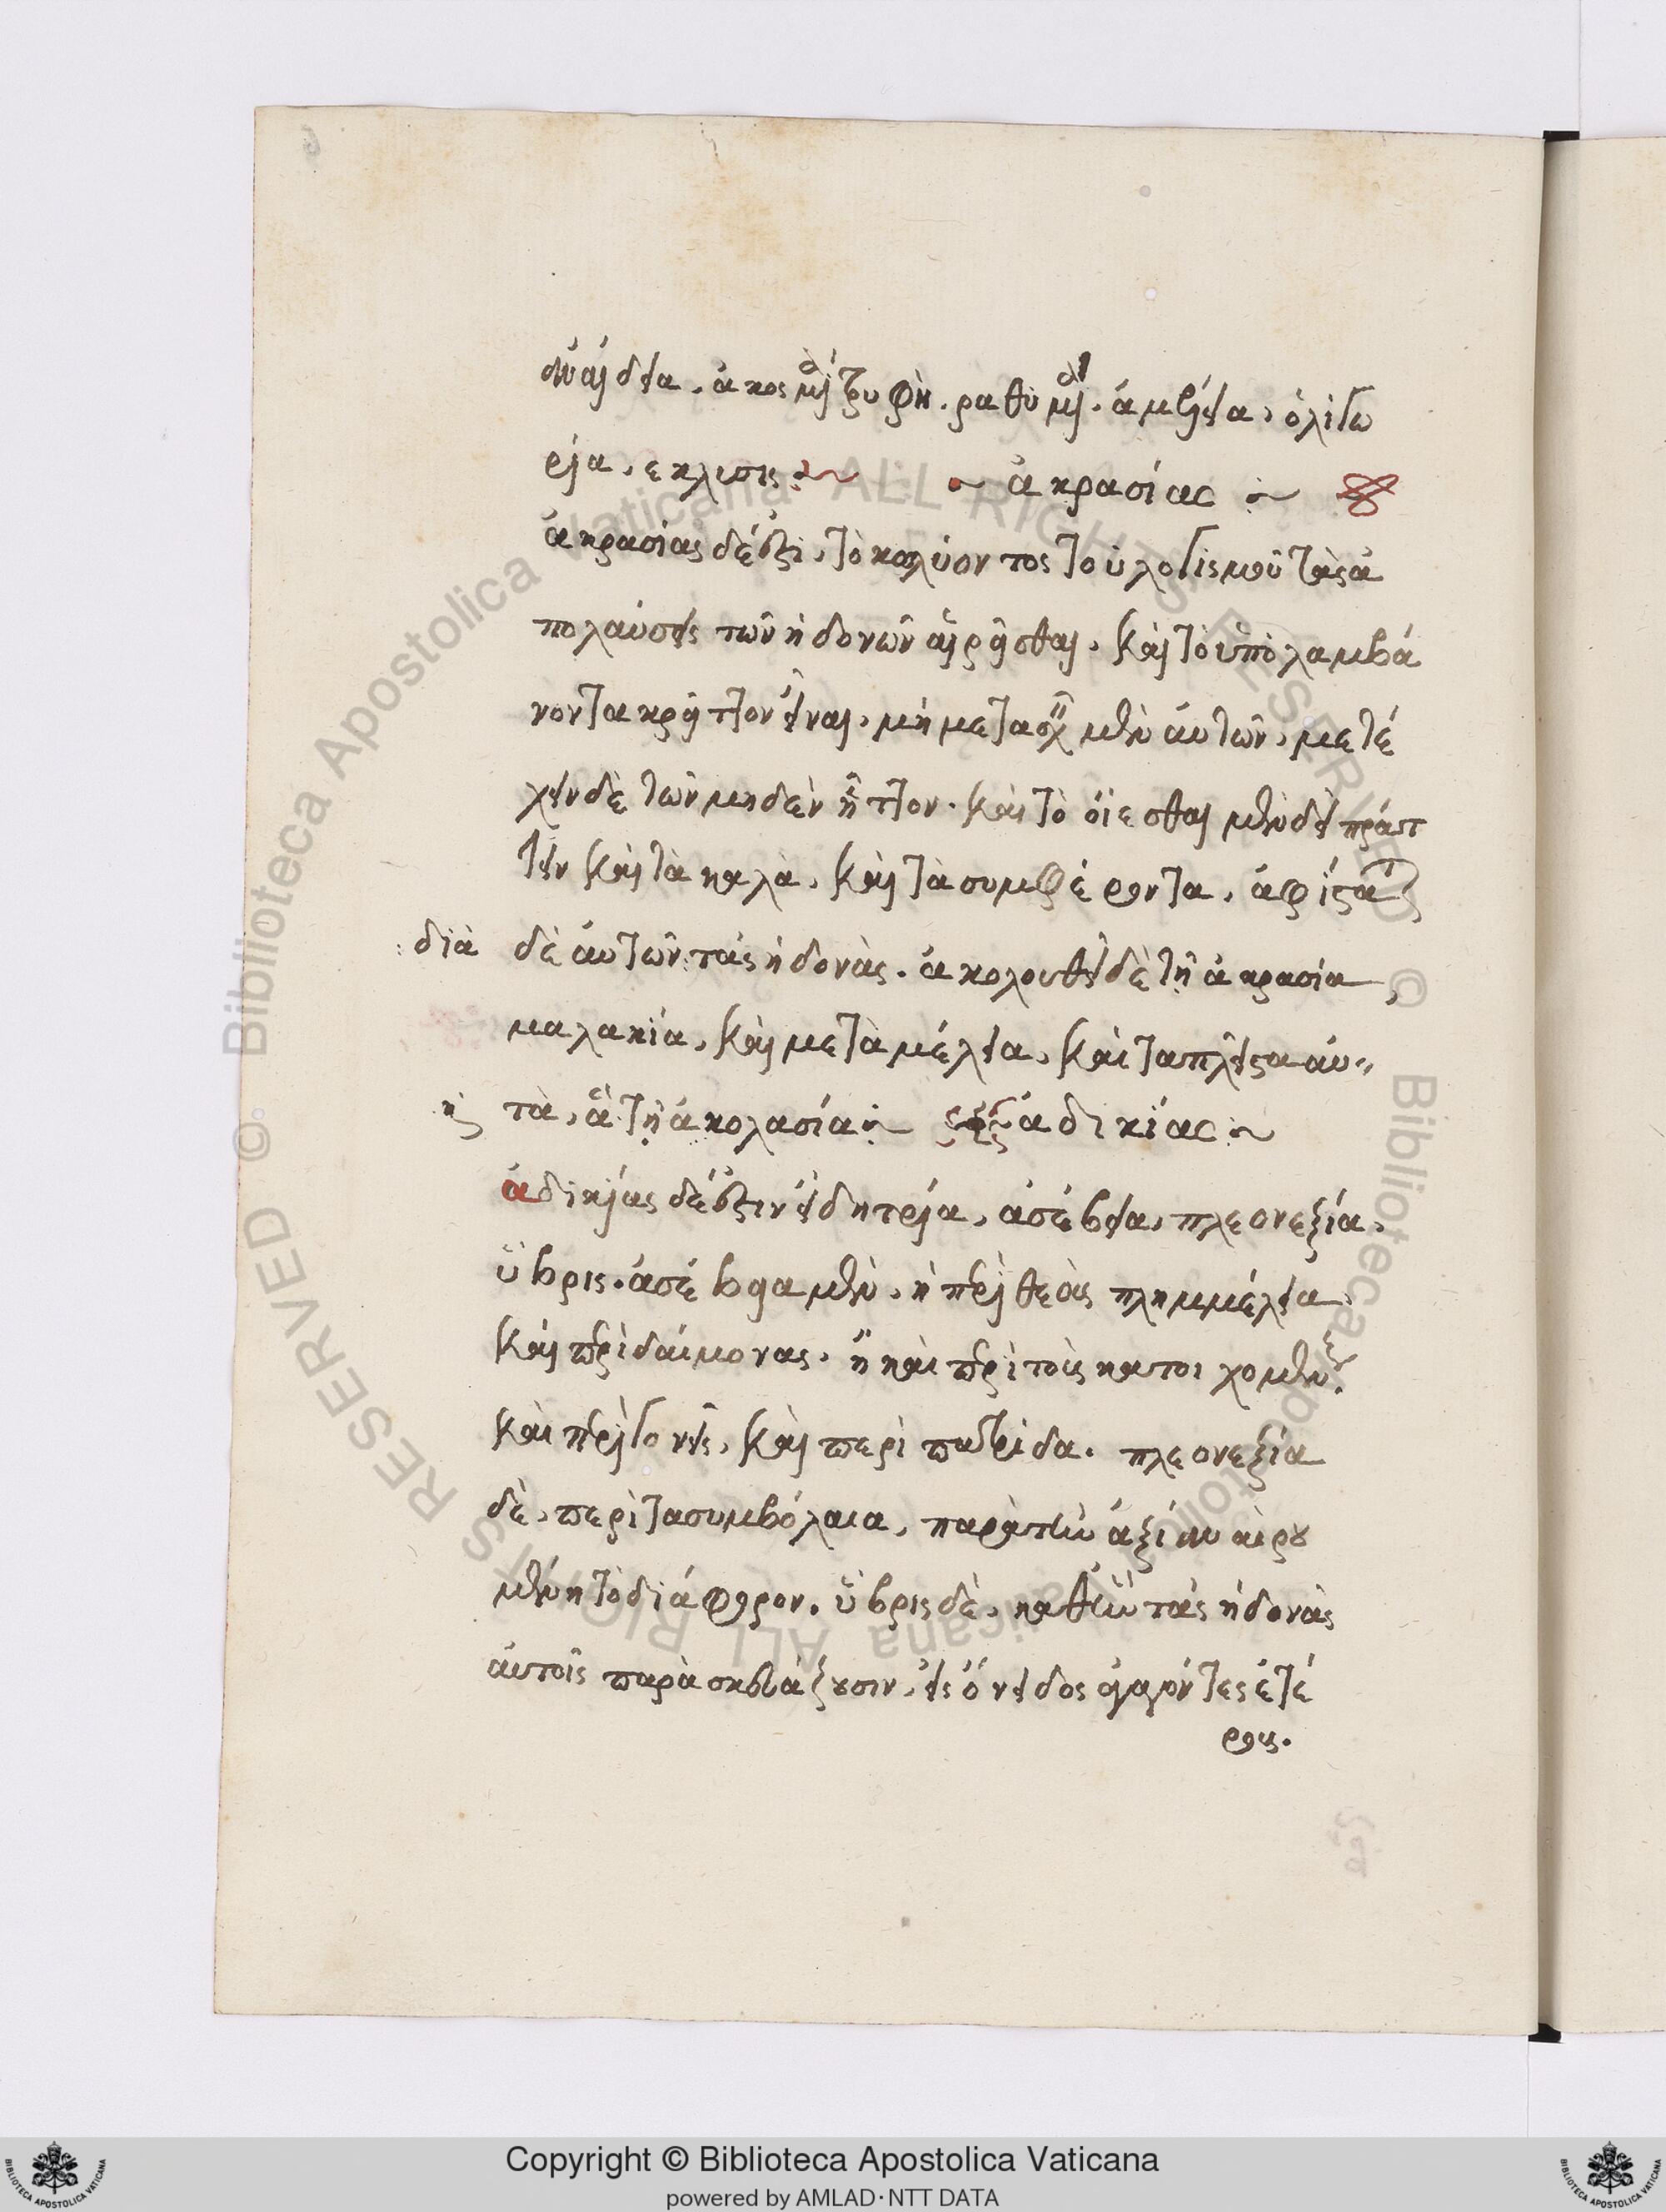 ἀναίδεια, ἀκοσμία, τρυφὴ. ραθυμία. ἀμέλεια, ὀλιγω
ρία, εκλυσις. ~ ~ ἀκρασίας ~
ἀκρασίας δέ ἐστι, τὸ κωλύοντος τοὺ λογισμοῦ τὰς ἀ
πολαύσεις τῶν ἡδονῶν αἱρεῖσθαι. καὶ τὸ ὑπολαμβά
νοντα κρεῖττον εἶναι, μὴ μετασχεῖν μὲν ἀυτῶν, μετέ
χειν δὲ τῶν μηδὲν ἧττον. καὶ τὸ οἴεσθαι μὲν δεῖ πράτ
τειν καὶ τὰ καλὰ, καὶ τὰ συμφέροντα, ἀφίστασθαι
διὰ δὲ ἀυτῶν τὰς ἡδονὰς. ἀκολουθεῖ δὲ τῇ ἀκρασία,
μαλακία, καὶ μεταμέλεια, καὶ τα πλεῖστα ἀυ"
τὰ, ἃ τῇ ἀκολασία ~ ἀδικίας ~
ἀδικίας δέ ἐστιν εἴδη τρία, ἀσέβεια, πλεονεξία,
ὕβρις. ἀσέβεια μὲν, ἡ περὶ θεοὺς πλημμέλεια
καὶ περὶ δαίμονας. ἢ καὶ περὶ τοὺς κατοιχομένους.
καὶ περὶ γονεῖς, καὶ περὶ πατρίδα. πλεονεξία
δὲ, περὶ τὰ συμβόλαια, παρὰ τὴν ἀξίαν αἱρου
μένη τὸ διάφορον. ὕβρις δὲ, καθ' ἣν τὰς ἡδονὰς
ἀυτοῖς παρασκευάζουσιν, εἰς ὄνειδος ἀγαγόντες ἑτέ
ρους.
Copyright © Biblioteca Apostolica Vaticana
powered by AMLAD·NTT DATA